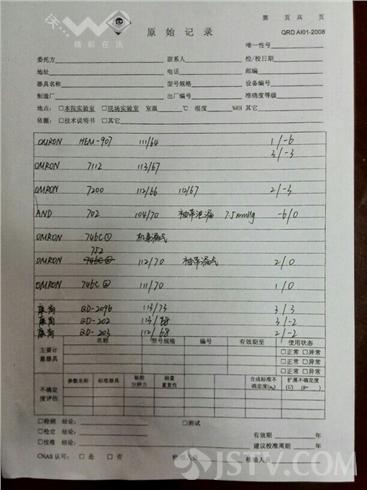 第 页 共 页
原 始 记 录
QRD AI01-2008
唯一性号
委托方 联系人 检/校日期
地址 电话 邮编
器具名称 型号规格 设备编号
制造厂 出厂编号 准确度等级
地点: □本院实验室 □现场实验室 室温 ℃ 湿度 %RH 其它
依据: □技术说明书 □其它
OMRON HEM-907 111/64 1/-6
3/-3
OMRON 7112 113/67
OMRON 7200 112/66 112/67 2/-3
AND 702 104/70 袖带泄漏 7.5mmHg -6/0
OMRON 746C① 机器漏气
752
OMRON 746C② 112/70 袖带漏气 2/0
OMRON 746C② 111/70 1/0
BD-2096 113/73 3/3
BD-202 113/68 3/-2
BD-203 112/68 2/-2
主要计量器具 名称 型号规格 编号 有效期至 使用状态
□正常 □异常
□正常 □异常
□正常 □异常
不确定度评估 参数名称 标准器具 测量重复性 合成标准不确定度 扩展不确定度
□检测 结论: □测试
□检定 结论: 有效期 年
□校准 结论: 建议校准周期 年
CNAS认可: □ 是 □ 否
JSTV.COM